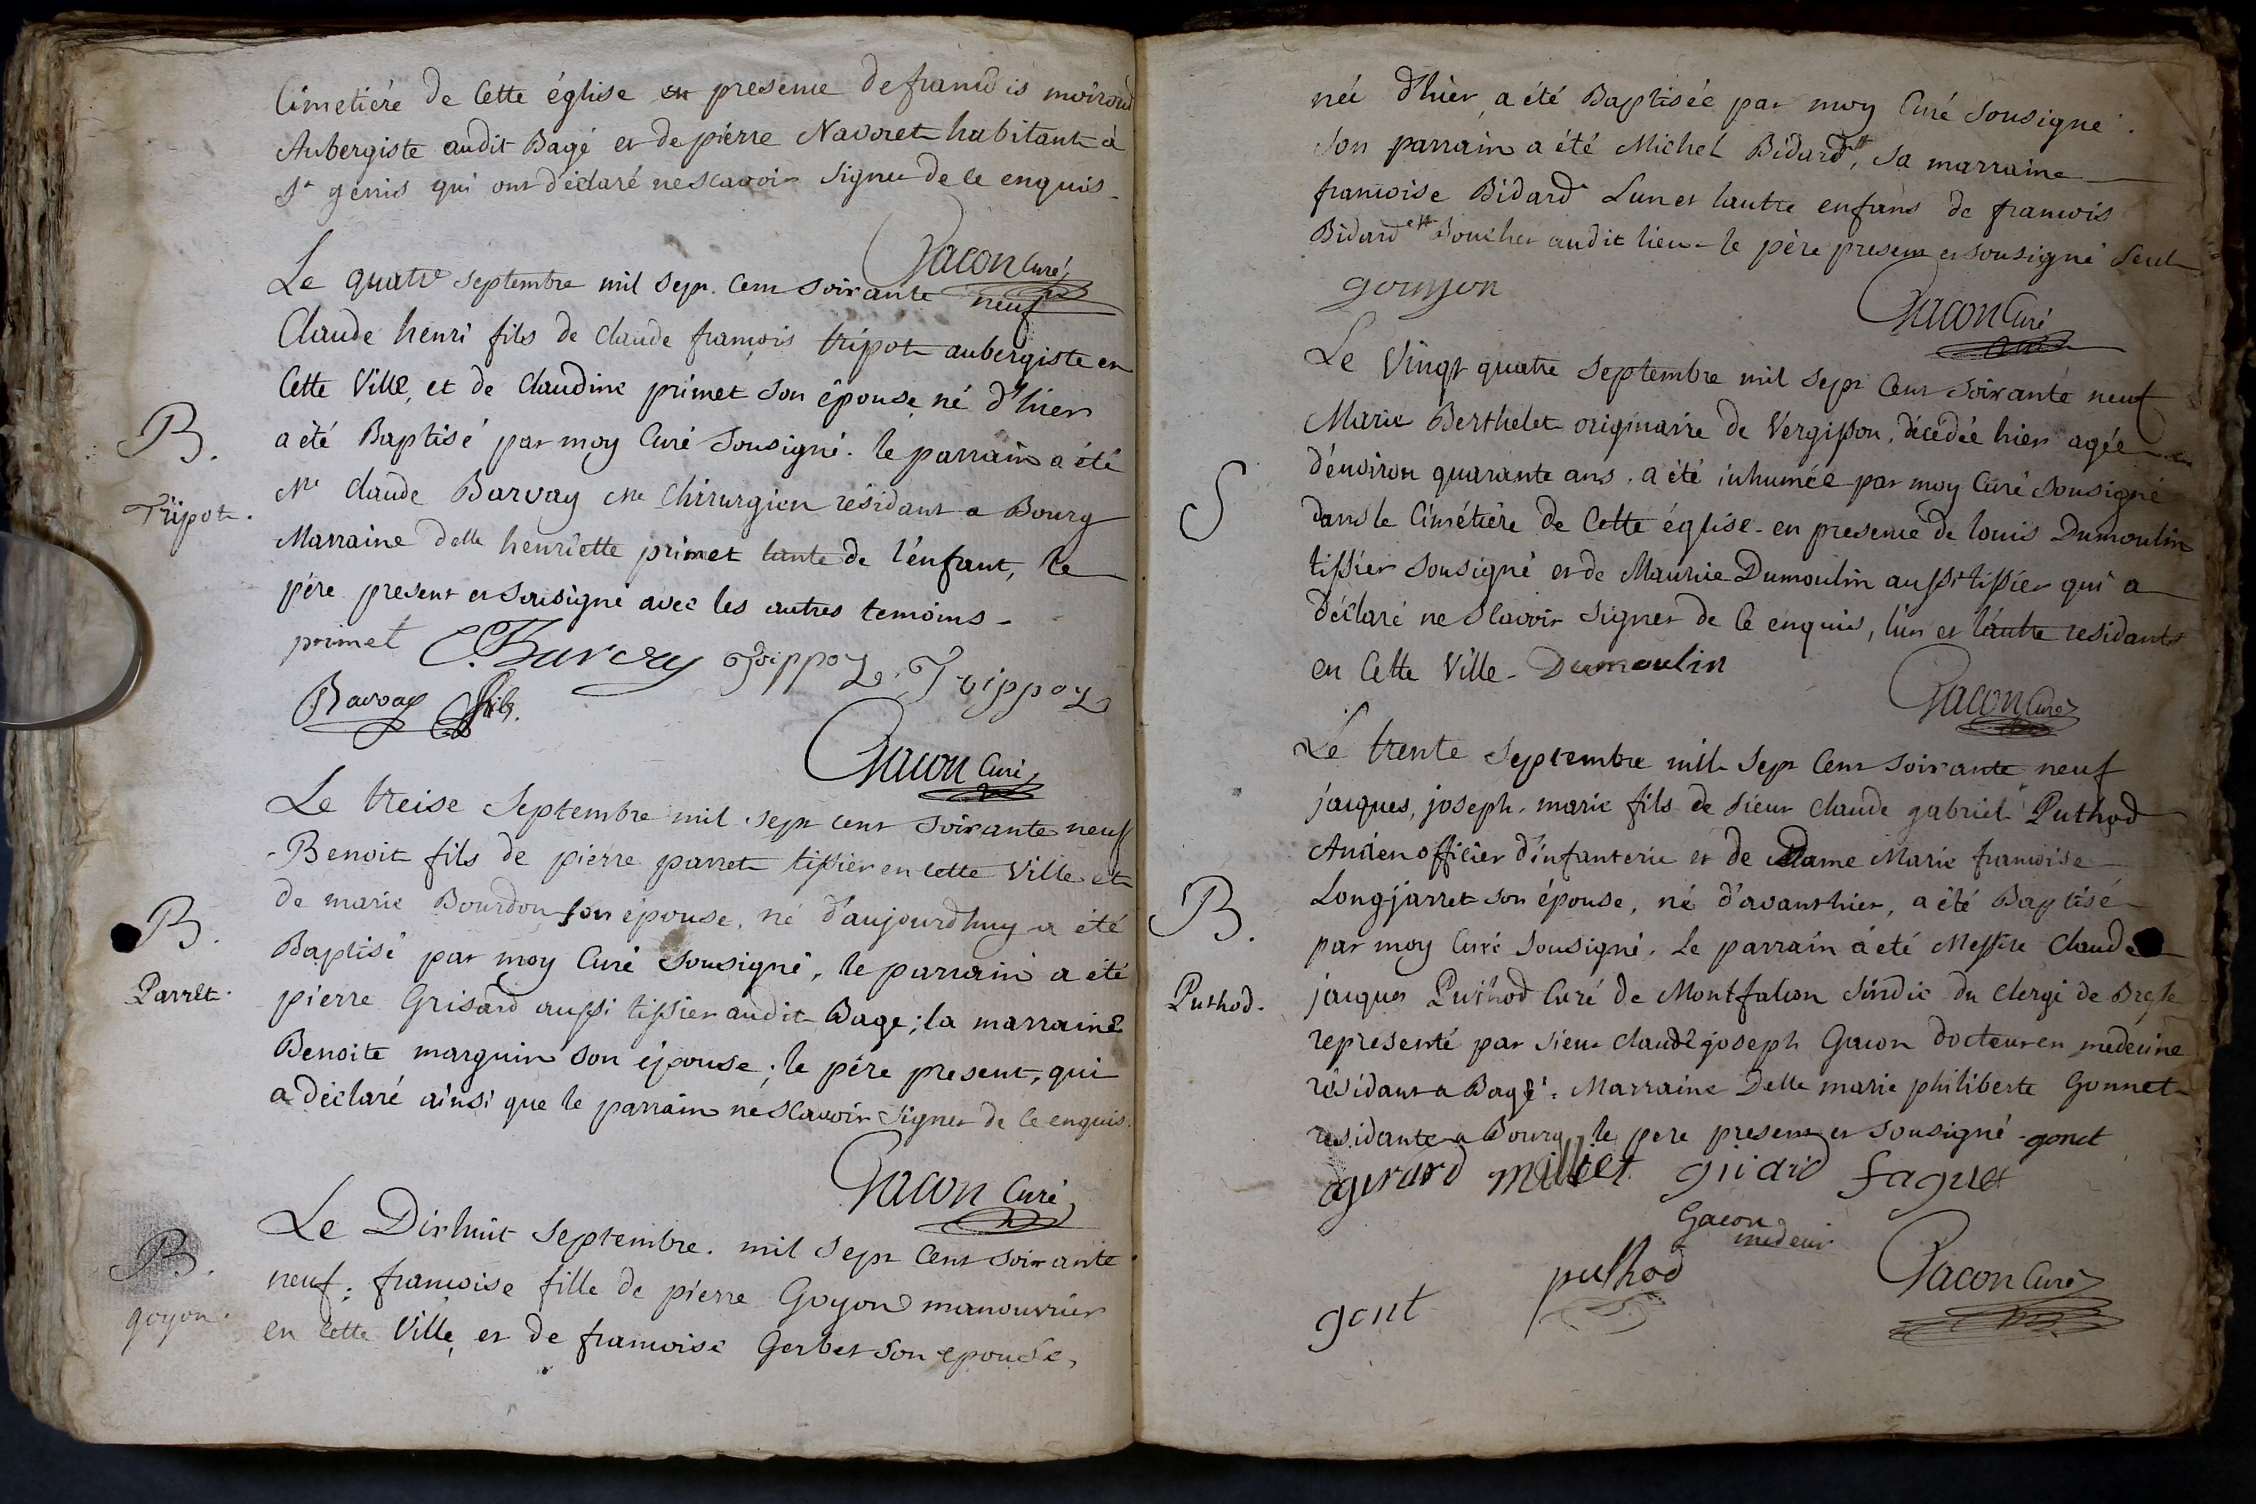 Cimetière de Cette église en presence de francois moiroud
Aubergiste audit Bagé et de pierre Navoret habitant à
St genis qui ont déclaré ne scavoir signer de ce enquis
Gacon Curé
Le quatre septembre mil sept cent soixante neuf
Claude henri fils de claude françois tripot aubergiste en
Cette Ville, et de Claudine primet son épouse né d'hier
a été Baptisé par moy Curé Sousigné. le parrain a été
Me claude Barvay me chirurgien résidant a Bourg
Marraine delle henriette primet tante de l'énfant, le
père present et sousigné avec les autres temoins
B.
Tripot.
primet C. Barvay Trippoz Trippoz
Barvay fils.
Gacon Curé
Le treise Septembre mil sept cent soixante neuf
Benoit fils de pierre parret tissier en cette Ville et
de marie Bourdon son épouse, né d'aujourdhuy a été
Baptisé par moy Curé Sousigné, le parrain a été
pierre Grisard aussi tissier audit Bage; la marraine
Benoite marguin son épouse; le père present, qui
a déclaré ainsi que le parrain ne scavoir signer de ce enquis.
B.
Parret.
Gacon Curé
Le Dixhuit Septembre. mil sept cent soixante
neuf; francoise fille de pierre Goyon manouvrier
en cette Ville, et de francoise Gerbet son epouse,
B.
goyon.
née d'hier, a été Baptisée par moy Curé Sousigné.
Son parrain a été Michel Bidard, sa marraine
francoise Bidard Lun et lautre enfans de francois
Bidard Boucher audit lieu le père present et sousigné seul
gouyon
Gacon Curé
Le Vingt quatre septembre mil sept cent soixante neuf
Marie Berthelet originaire de Vergisson, décédée hier agée
d'énviron quarante ans. a été inhumée par moy Curé sousigné
dans le Cimétière de Cette église en presence de louis Dumoulin
tissier sousigné et de Maurice Dumoulin aussi tissier qui a
déclaré ne Scavoir signer de ce enquis, l'un et l'autre residants
en Cette Ville Dumoulin
S
Gacon Curé
Le trente septembre mil sept cent soixante neuf
jacques, joseph, marie fils de sieur claude gabriel Puthod
Ancien officier d'infanterie et de Dame Marie francoise
Longjarret son épouse, né d'avanthier, a été Baptisé
par moy Curé sousigné. Le parrain a été Messire Claude
jacques Puthod Curé de Montfalcon sindic du clergé de Bresse
representé par sieur claude joseph Gacon docteur en médecine
résidant a Bagé. Marraine Delle marie philiberte Gonnet
residante a Bourg le pere present et sousigné gonet
B.
Puthod.
girard millet guiard faguet
Gacon
medecin
gont puthod Gacon Curé